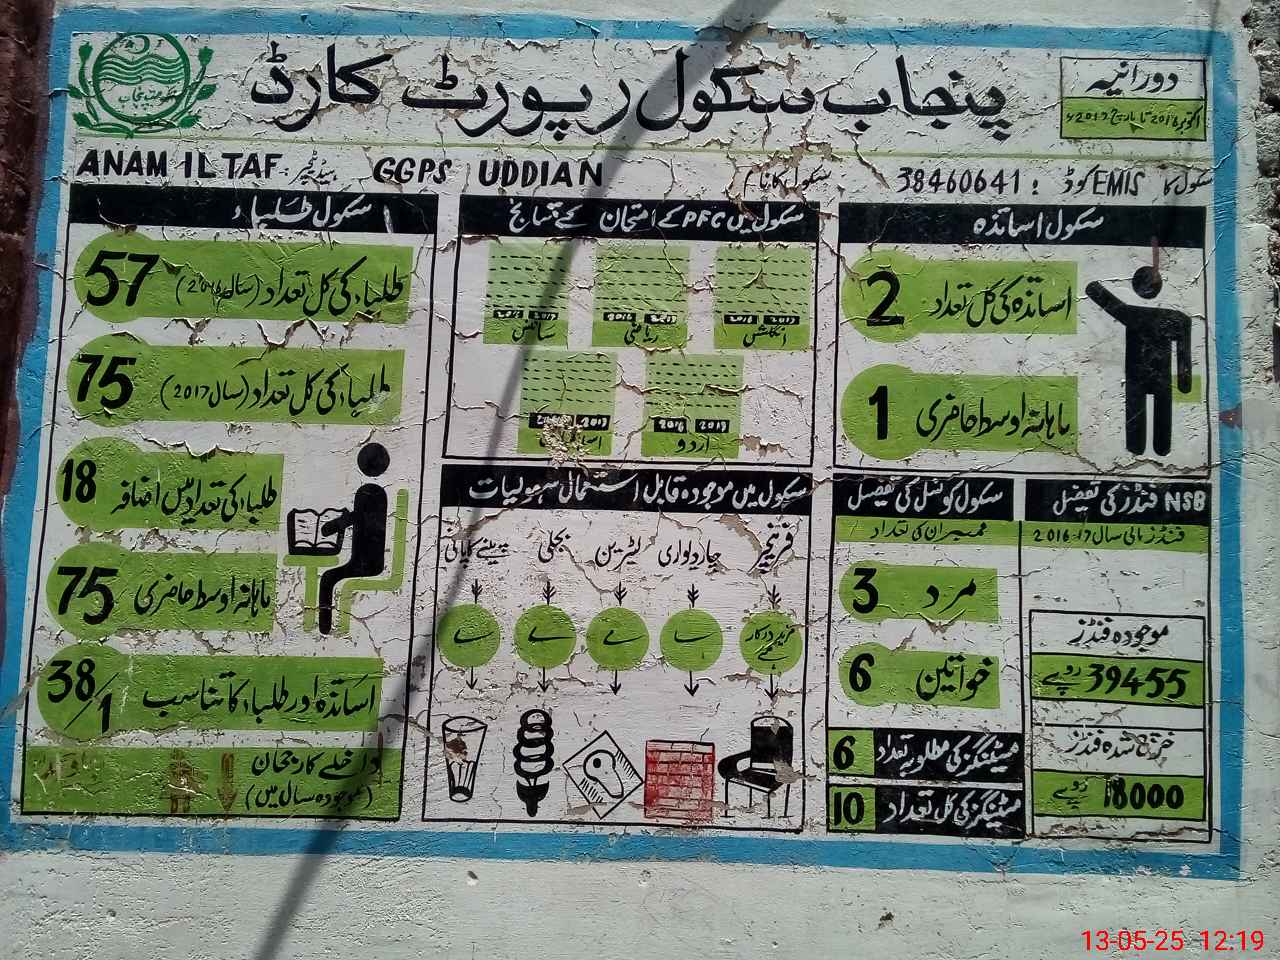 حکومت پنجاب
پنجاب سکول رپورٹ کارڈ
دورانیہ
اکتوبر 2016 تا مارچ 2017ء
سکول کا EMIS کوڈ : 38460641
سکول کا نام GGPS UDDIAN
ہیڈ ٹیچر: ANAM ILTAF
سکول طلباء
57 طلباء کی کل تعداد (سال 2016)
75 طلباء کی کل تعداد (سال 2017)
18 طلباء کی تعداد میں اضافہ
75 ماہانہ اوسط حاضری
38/1 اساتذہ اور طلباء کا تناسب
داخلے کا رجحان
(موجودہ سال میں)
سکول میں PFC کے امتحان کے نتائج
2016 2017
انگلش
2016 2017
ریاضی
2016 2017
سائنس
2016 2017
اردو
2016 2017
سکول میں موجودہ قابل استعمال سہولیات
فرنیچر
چار دیواری
لیٹرین
بجلی
پینے کا پانی
مزید درکار ہے
ہے
ہے
ہے
ہے
سکول اساتذہ
2 اساتذہ کی کل تعداد
1 ماہانہ اوسط حاضری
سکول کونسل کی تفصیل
ممبران کی تعداد
3 مرد
6 خواتین
6 میٹنگز کی مطلوبہ تعداد
10 میٹنگز کی کل تعداد
NSB فنڈز کی تفصیل
فنڈز مالی سال 17-2016
موجودہ فنڈز
39455 روپے
خرچ شدہ فنڈز
18000 روپے
13-05-25 12:19